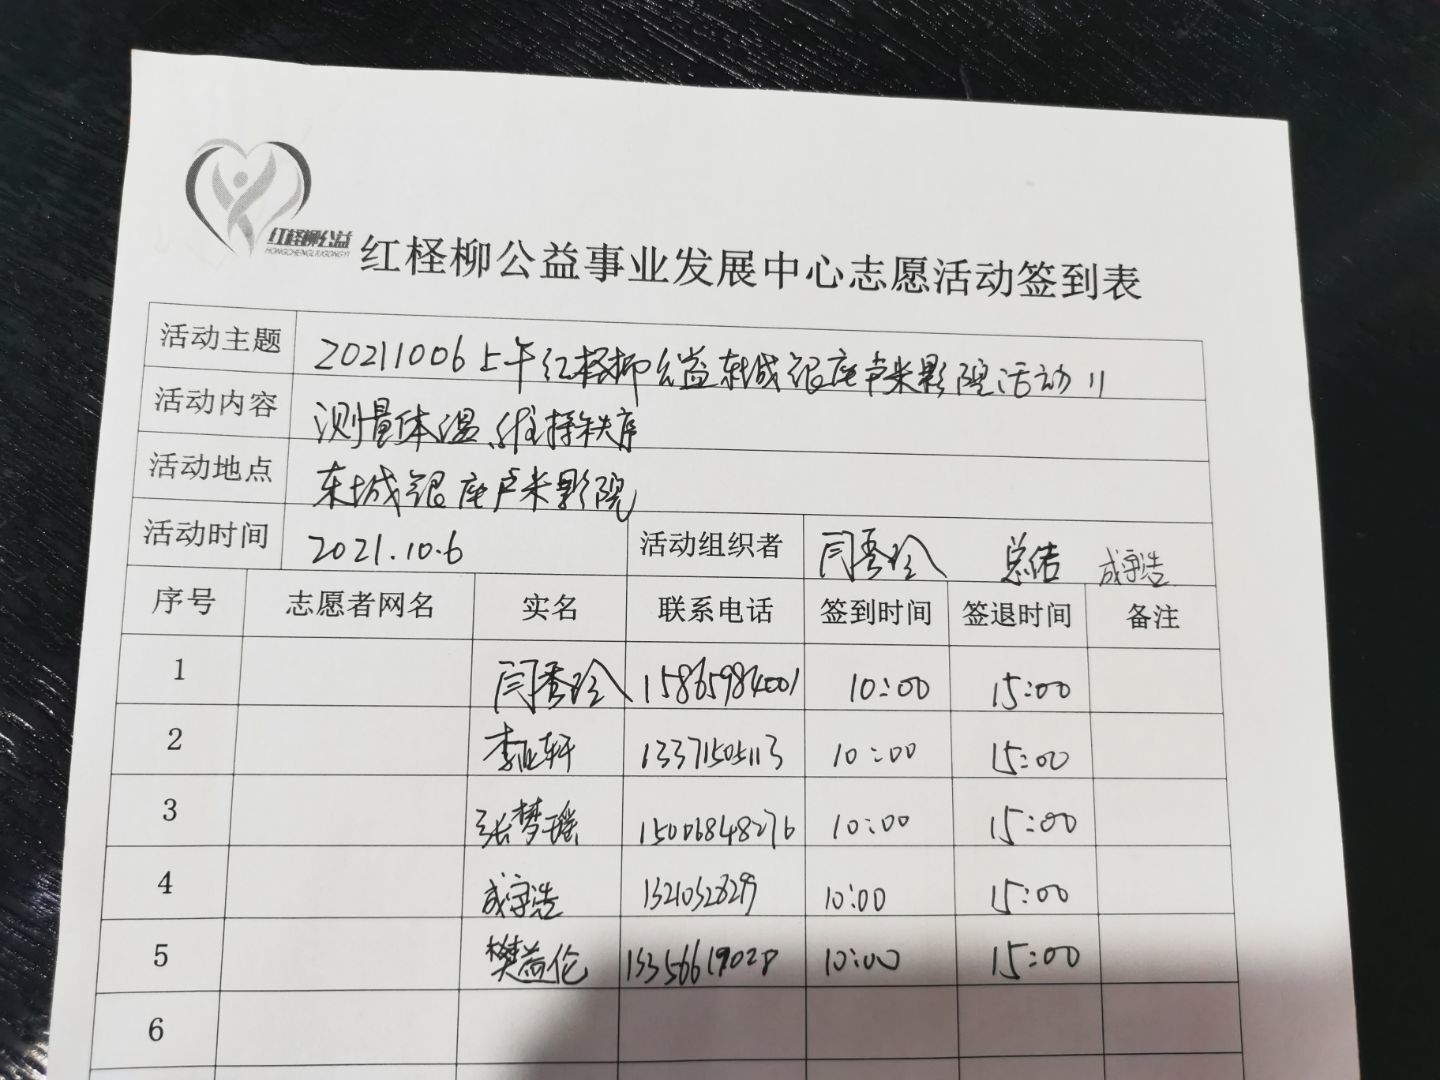 红柽柳公益
HONGCHENGLIUGONGYI
红柽柳公益事业发展中心志愿活动签到表
活动主题 20211006上午红柽柳公益东城银座卢米影院活动11
活动内容 测量体温、维持秩序
活动地点 东城银座卢米影院
活动时间 2021.10.6 活动组织者 闫秀玲 总结 成宇浩
序号 志愿者网名 实名 联系电话 签到时间 签退时间 备注
1 闫秀玲 15865984001 10:00 15:00
2 李亚轩 13371505113 10:00 15:00
3 张梦瑶 15006848276 10:00 15:00
4 成宇浩 10:00 15:00
5 樊益伦 13356619028 10:00 15:00
6